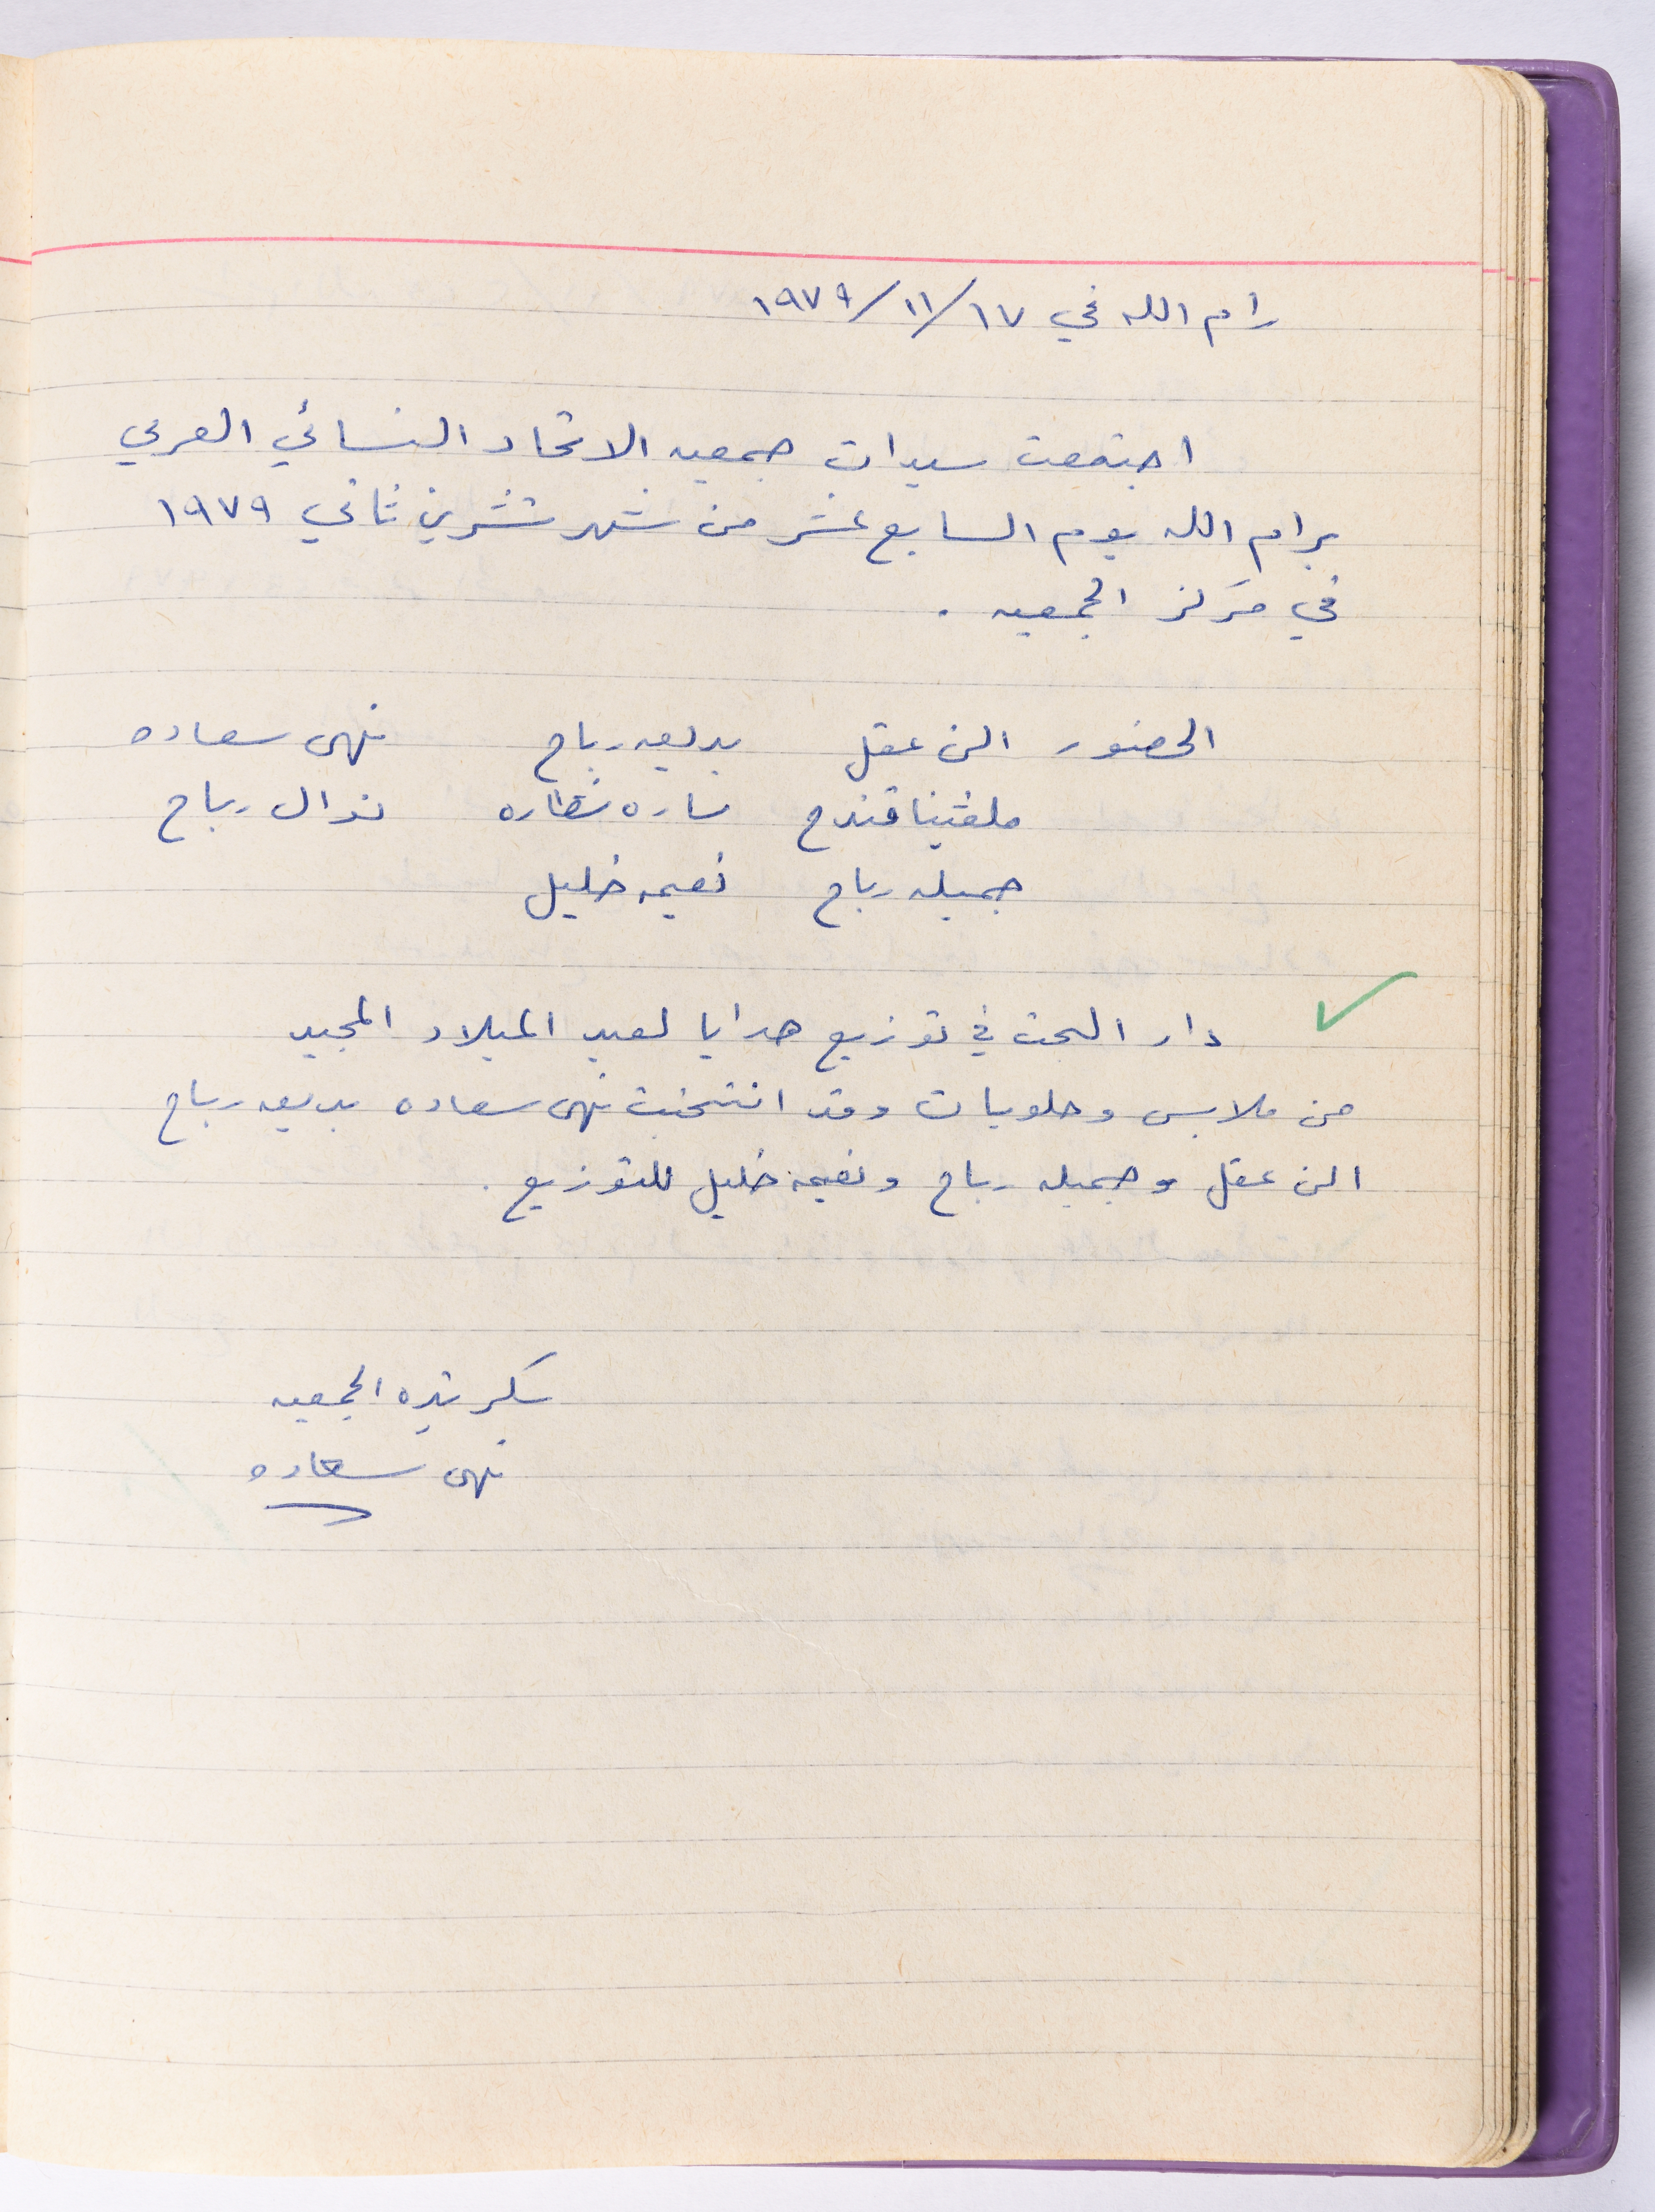 رام الله في ١٧/١١/١٩٧٩
اجتمعت سيدات جمعيه الاتحاد النسائي العربي
برام الله يوم السابع عشر من شهر تشرين ثاني ١٩٧٩
في مركز الجمعيه .
الحضور الن عقل بديعه رباح نهى سعاده
ملفينا قندح ساره نظاره نوال رباح
جميله رباح نعيمه خليل
دار البحث في توزيع هدايا لعيد الميلاد المجيد
من ملابس وحلويات وقد انتخبت نهى سعاده بديعه رباح
الن عقل وجميله رباح ونعيمه خليل للتوزيع .
سكرتيره الجمعيه
نهى سعاده